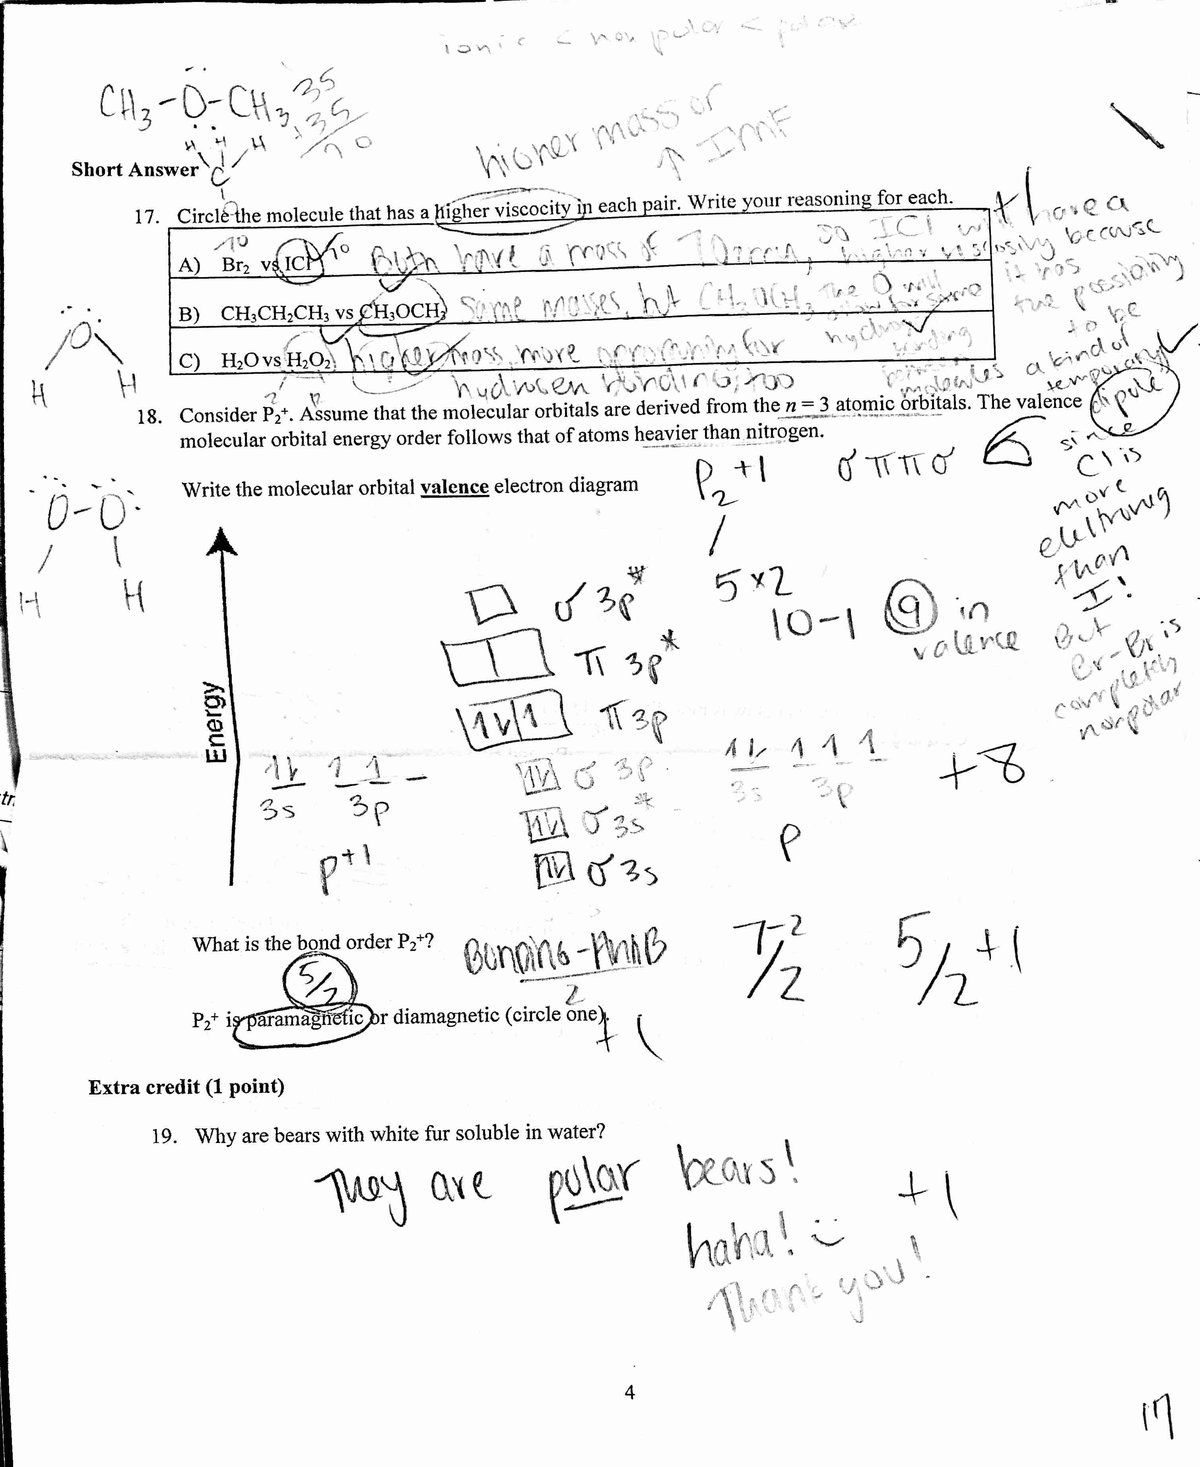 ionic < non polar < polar
CH3-O-CH3
35
+35
70
H H H
C
higher mass or
↑ IMF
Short Answer
17. Circle the molecule that has a higher viscocity in each pair. Write your reasoning for each.
70
A) Br₂ vs ICl 70 Both have a mass of 70 , so ICl will have a
higher viscosity because
it has
the possibility
to be
a kind of
temporary
dipole
since
Cl is
more
eleltroneg
than
I!
But
Br-Br is
completely
nonpolar
B) CH₃CH₂CH₃ vs CH₃OCH₃ Same masses, but CH3OCH3 The O will
allow for some
hydrogen
bonding
between
molecules
C) H₂O vs H₂O₂ higher mass, more opportunity for
hydrogen bonding, too
O
H H
18. Consider P₂⁺. Assume that the molecular orbitals are derived from the n = 3 atomic orbitals. The valence
molecular orbital energy order follows that of atoms heavier than nitrogen.
Write the molecular orbital valence electron diagram
P2 +1 σ π π σ
O-O
H H
5×2
10-1 9 in
valence
Energy
σ 3p*
π 3p*
π 3p
σ 3p
σ 3s*
σ 3s
3s 3p
P+1
3s 3p
P
+8
What is the bond order P₂⁺?
Bonding-AntiB
2
7-2
/2
5/2 +1
5/2
P₂⁺ is paramagnetic or diamagnetic (circle one).
+1
Extra credit (1 point)
19. Why are bears with white fur soluble in water?
They are polar bears!
haha!
Thank you!
+1
4
17